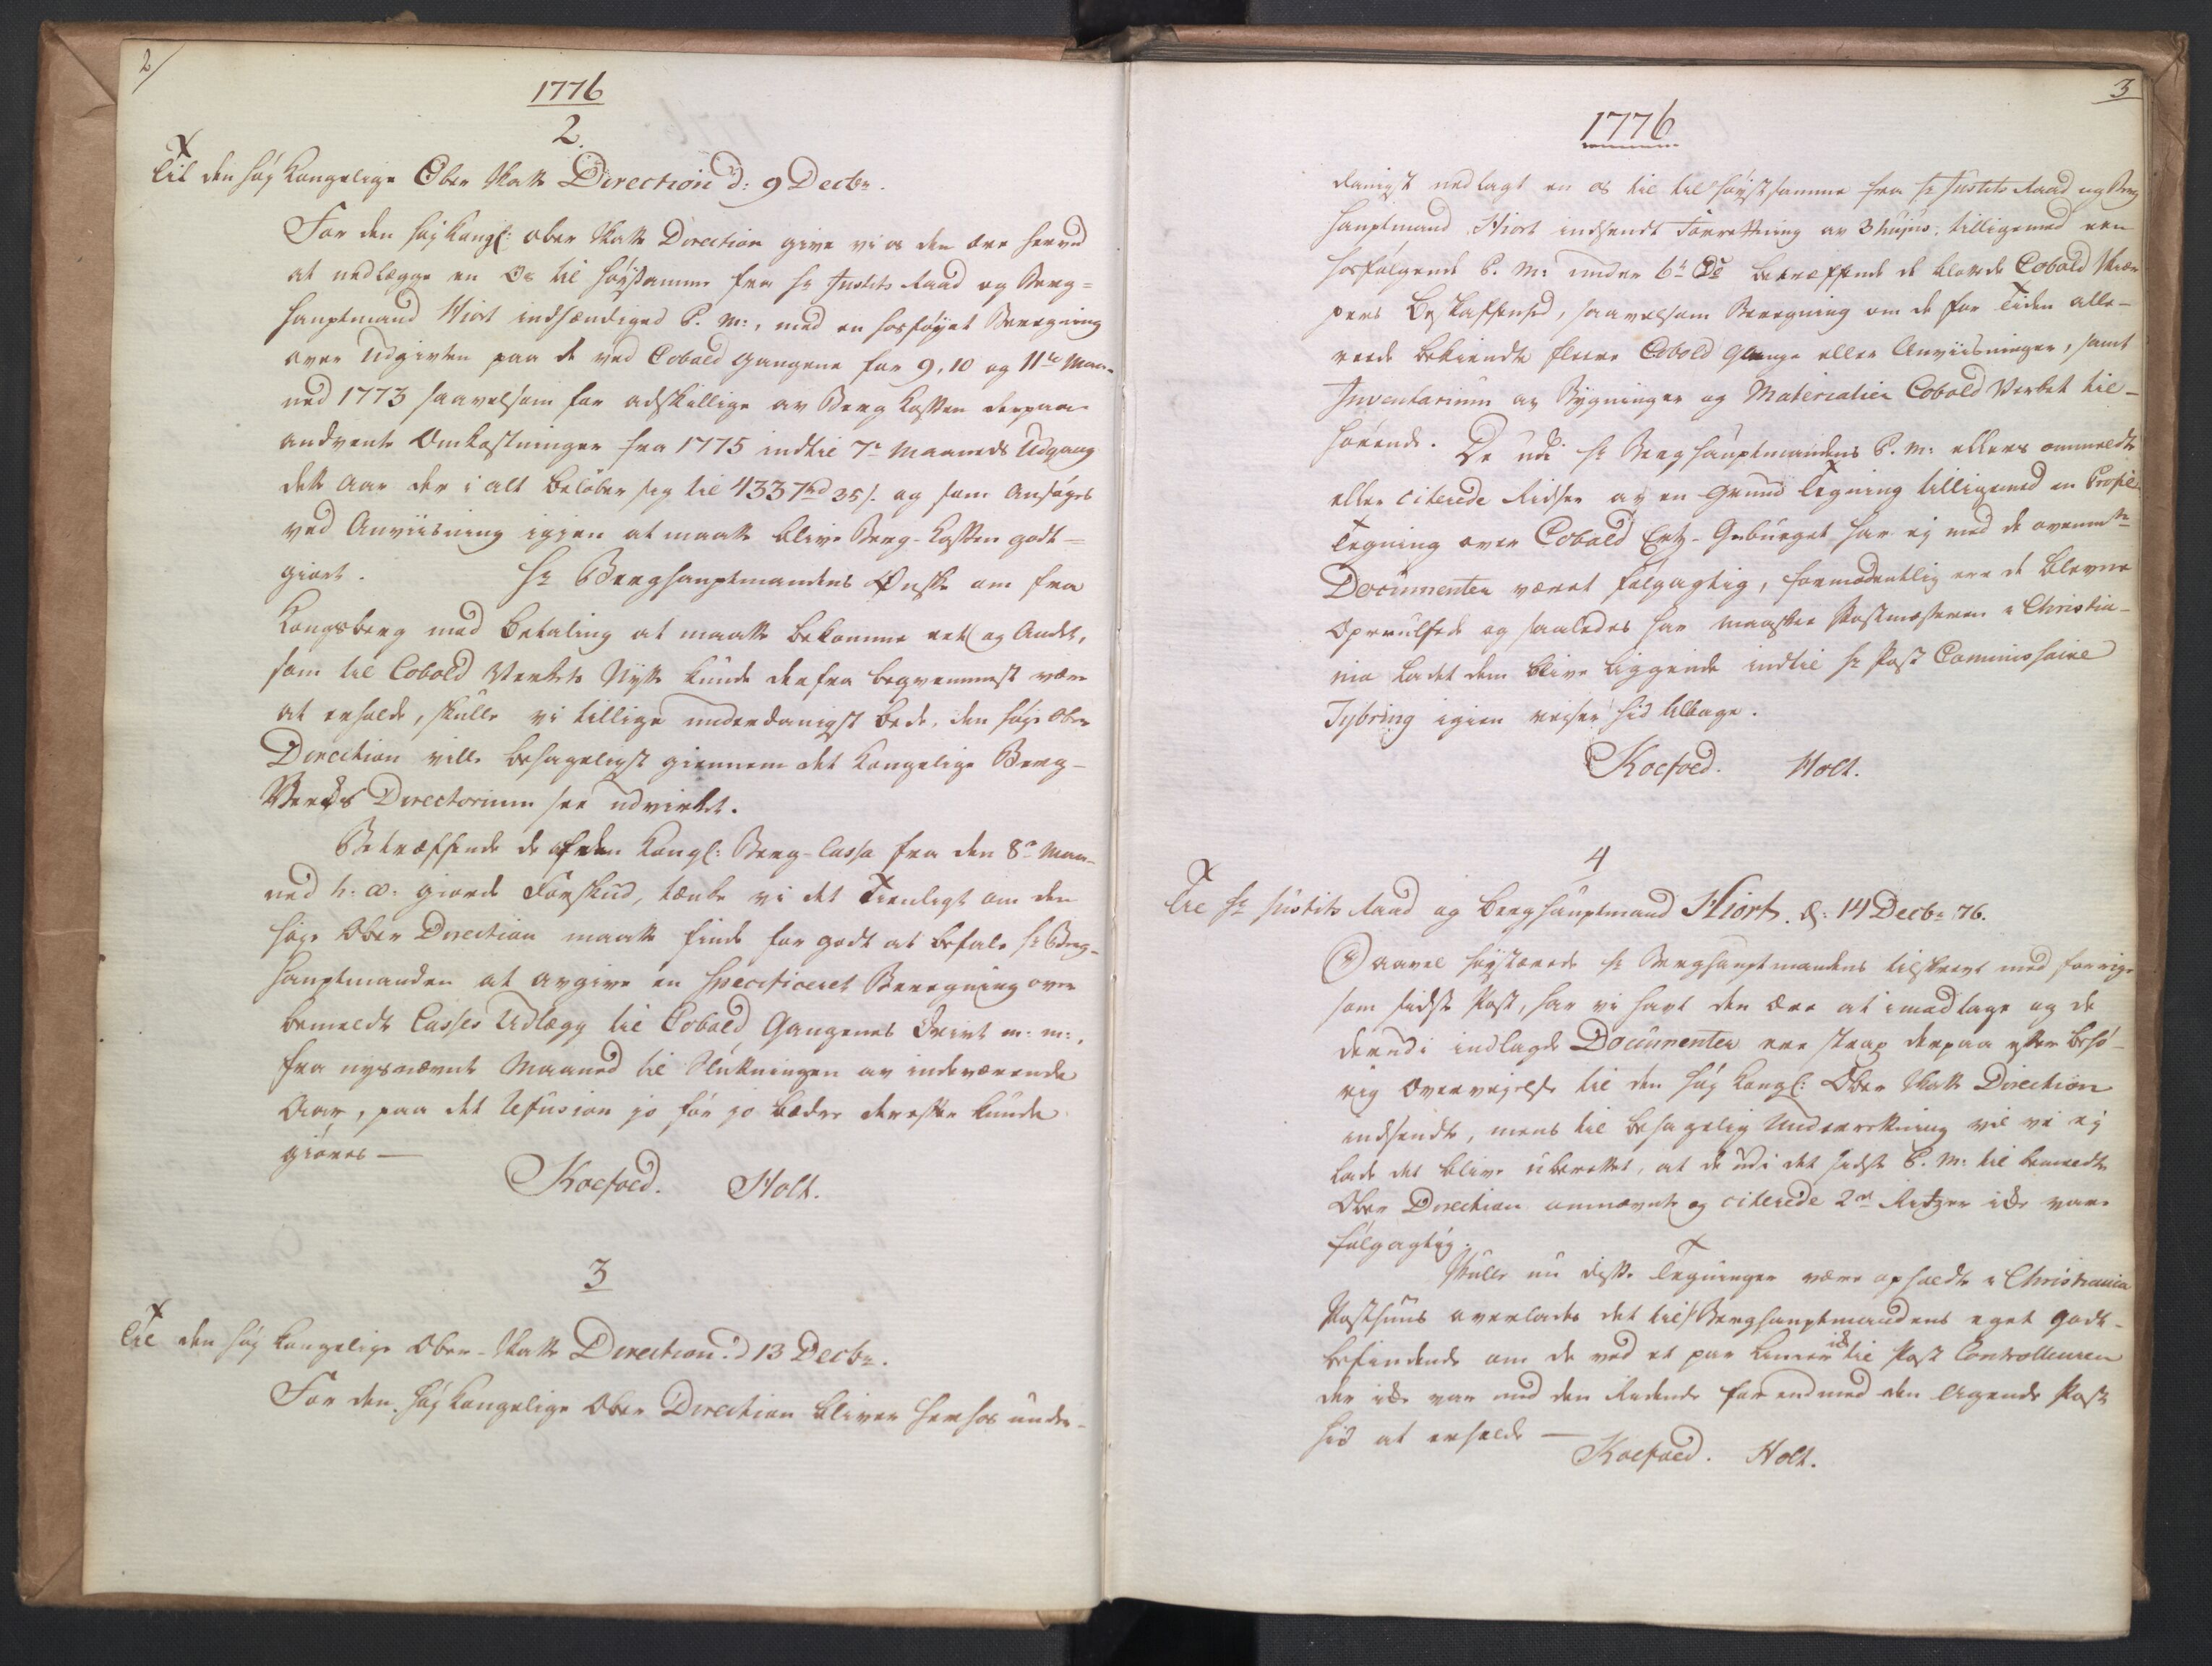 2/
1776
2.
Til den høj Kongelige Ober Skatte Direction d: 9 Decbr.
For den høj Kongl: Ober Skatte Direction give vi os den ære herved
at nedlægge en Os til høystsamme fra Hr Justits Raad og Berg=
hauptmand Hiort indhændiget P. M:, med en hosføyet Beregning
over Udgivten paa de ved Cobold Gangene for 9, 10 og 11te Maa-
ned 1773 saavelsom for adskillige av Berg Cassen derpaa
anvendte Omkostninger fra 1775 indtil 7de Maaneds Udgang
dette Aar der i alt beløber sig til 4337rd 35s. og som ansøges
ved Anviisning igjen at maatte blive Berg-Cassen godt=
giort. Hr Berghauptmandens Ønske om fra
Kongsberg mod Betaling at maatte bekomme eet og Andet,
som til Cobold Verkets Nytte kunde derfra beqvemmest være
at erholde, skulle vi tillige underdanigst bede, den høje Ober
Direction ville behageligst giennem det Kongelige Berg-
Verks Directorium see udvirket.
Betræffende de af den Kongl: Berg-Cassa fra den 8de Maa-
ned h. a. giorde Forskud, tænke vi det tienligt om den
høje Ober Direction maatte finde for godt at befale Hr Berg-
hauptmanden at avgive en specificeret Beregning over
bemeldte Casses Udlæg til Cobold Gangenes Drivt m: m:,
fra nysnævnte Maaned til Slutningen av indeværende
Aar, paa det Refusion jo før jo bedre derefter kunde
giøres —
Koefoed. Holt.
3
Til den høj Kongelige Ober-Skatte Direction. d 13 Decbr.
For den høj Kongelige Ober Direction bliver herhos under-
3
1776
danigst nedlagt en os til til høystsamme fra Hr Justits Raad og Berg
hauptmand Hiort indsendt Forrettning av 3 hujus, tilligemed een
hosfølgende P. M: under 6te De betræffende de Cobold
pers Beskaffenhed, saavelsom Beregning om de for Tiden alle-
reede bekiendte fleere Cobold Gange eller Anviisninger, samt
Inventarium av Bygninger og Materialier Cobold Verket til-
hørende. De udi Hr Berghauptmandens P. M: ellers ommeldte
eller citerede Ridser av en Grund Tegning tilligemed en Profil
Tegning over Cobold Ertz-Gebürget har ej med de ovenmte
Documenter været følgagtig, formodentlig ere de blevne
og saaledes har maaskee Postmesteren i Christia-
nia ladet dem blive liggende indtil Hr Post Commissaire
Tybring igien rejser hid tilbage.
Koefoed. Holt.
4
Til Hr Justits Raad og Berghauptmand Hiort. d: 14 Decbr 76.
Saavel høystærede Hr Berghauptmandens tilskrevet med forrige
som sidste Post, har vi havt den ære at imodtage og de
derudi indlagde Documenter ere strax derpaa efter behø-
rig Overvejelse til den høj Kongl: Ober Skatte Direction
indsendte, mens til behagelig Underretning vil vi ej
lade det blive uberettet, at de udi det sidste P. M: til bemeldte
Ober Direction omnævnte og citerede 2de Ridtzer ikke vare
følgagtig.
Skulle nu disse Tegninger være opholdte i Christiania
Posthuus overlades det til Hr Berghauptmandens eget godt-
befindende om de ved et par Linier til Post Controlleuren
der ikke var med den Ridende for end med den Agende Post
hid at erholde —
Koefoed. Holt.